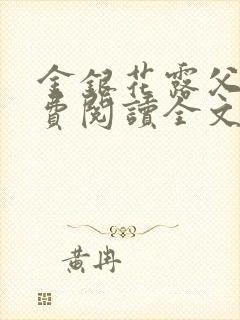 金銀花露父
費閱讀全文
黃冉